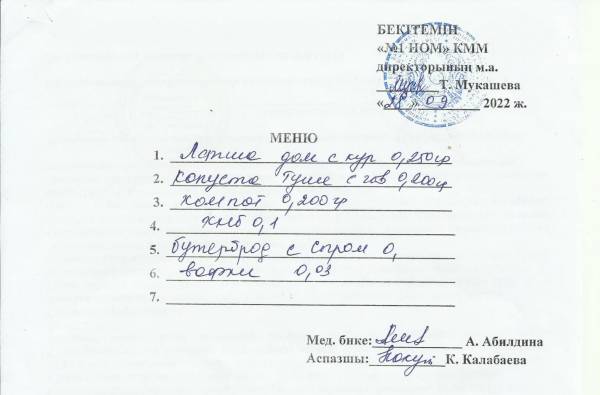 БЕКІТЕМІН
«№1 НОМ» КММ
директорының м.а.
Т. Мукашева
«28» 09 2022 ж.
МЕНЮ
1. Лапша дом с кур 0,250гр
2. Капуста туше с гов 0,200гр
3. Компот 0,200гр
4. хлеб 0,1
5. бутерброд с сыром 0,
6. вафли 0,03
7.
Мед. бике: А. Абилдина
Аспазшы: К. Калабаева